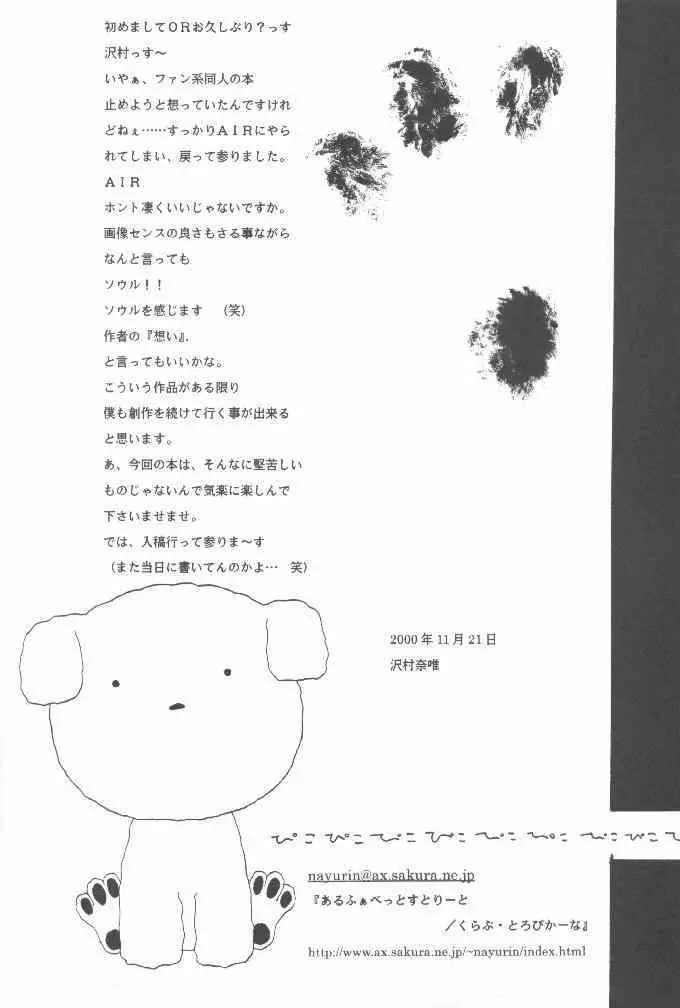 初めましてＯＲお久しぶり？っす
沢村っす～
いやぁ、ファン系同人の本
止めようと想っていたんですけれ
どねぇ……すっかりＡＩＲにやら
れてしまい、戻って参りました。
ＡＩＲ
ホント凄くいいじゃないですか。
画像センスの良さもさる事ながら
なんと言っても
ソウル！！
ソウルを感じます　（笑）
作者の『想い』、
と言ってもいいかな。
こういう作品がある限り
僕も創作を続けて行く事が出来る
と思います。
あ、今回の本は、そんなに堅苦しい
ものじゃないんで気楽に楽しんで
下さいませませ。
では、入稿行って参りま～す
（また当日に書いてんのかよ…　笑）
2000 年 11 月 21 日
沢村奈唯
ぴこぴこぴこぴこぴこぴこぴこぴこ
nayurin@ax.sakura.ne.jp
『あるふぁべっとすとりーと
／くらぶ・とろぴかーな』
http://www.ax.sakura.ne.jp/~nayurin/index.html